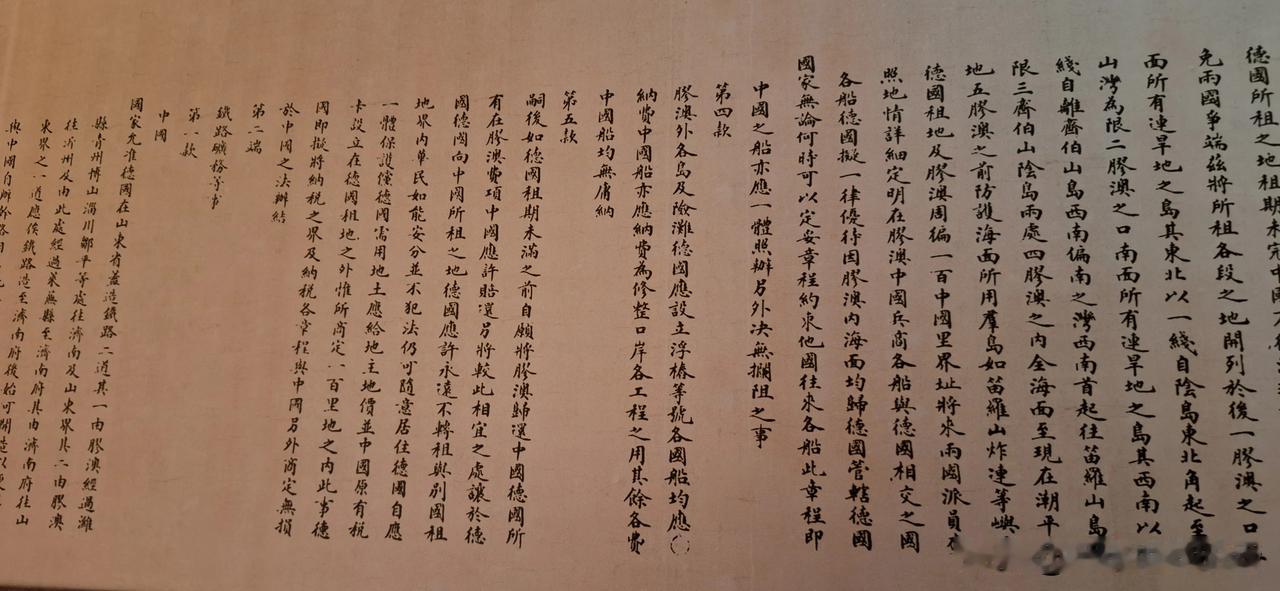 德國所租之地租期未完中國
免兩國爭端茲將所租各段之地開列於後一膠澳之口
面所有連旱地之島其東北以一綫自陰島東北角起至
山灣為限二膠澳之口南面所有連旱地之島其西南以
綫自離齊伯山島西南偏南之灣西南首起往笛羅山島
限三齊伯山陰島兩處四膠澳之內全海面至現在潮平
地五膠澳之前防護海面所用羣島如笛羅山炸連等嶼
德國租地及膠澳周徧一百中國里界址將來兩國派員
照地情詳細定明在膠澳中國兵商各船與德國相交之國
各船德國擬一律優待因膠澳內海面均歸德國管轄德國
國家無論何時可以定妥章程約束他國往來各船此章程即
中國之船亦應一體照辦另外決無攔阻之事
第四款
膠澳外各島及險灘德國應設立浮樁等號各國船均應
納費中國船亦應納費為修整口岸各工程之用其餘各費
中國船均無庸納
第五款
嗣後如德國租期未滿之前自願將膠澳歸還中國德國所
有在膠澳費項中國應許賠還另將較此相宜之處讓於德
國德國向中國所租之地德國應許永遠不轉租與別國租
地界內華民如能安分並不犯法仍可隨意居住德國自應
一體保護儻德國需用地土應給地主地價並中國原有稅
卡設立在德國租地之外惟所商定一百里地之內此事德
國即擬將納稅之界及納稅各章程與中國另外商定無損
於中國之法辦結
第二端
鐵路礦務等事
第一款
中國
國家允准德國在山東省蓋造鐵路二道其一由膠澳經過濰
縣青州博山淄川鄒平等處往濟南及山東界其二由膠澳
往沂州及由此處經過萊蕪縣至濟南府其由濟南府往山
東界之一道應俟鐵路造至濟南府後始可開造以便
與中國自辦幹路